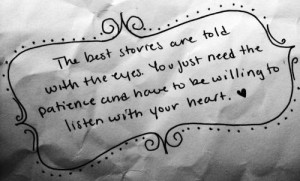 The best stories are told
with the eyes. You just need the
patience and have to be willing to
listen with your heart. ♥